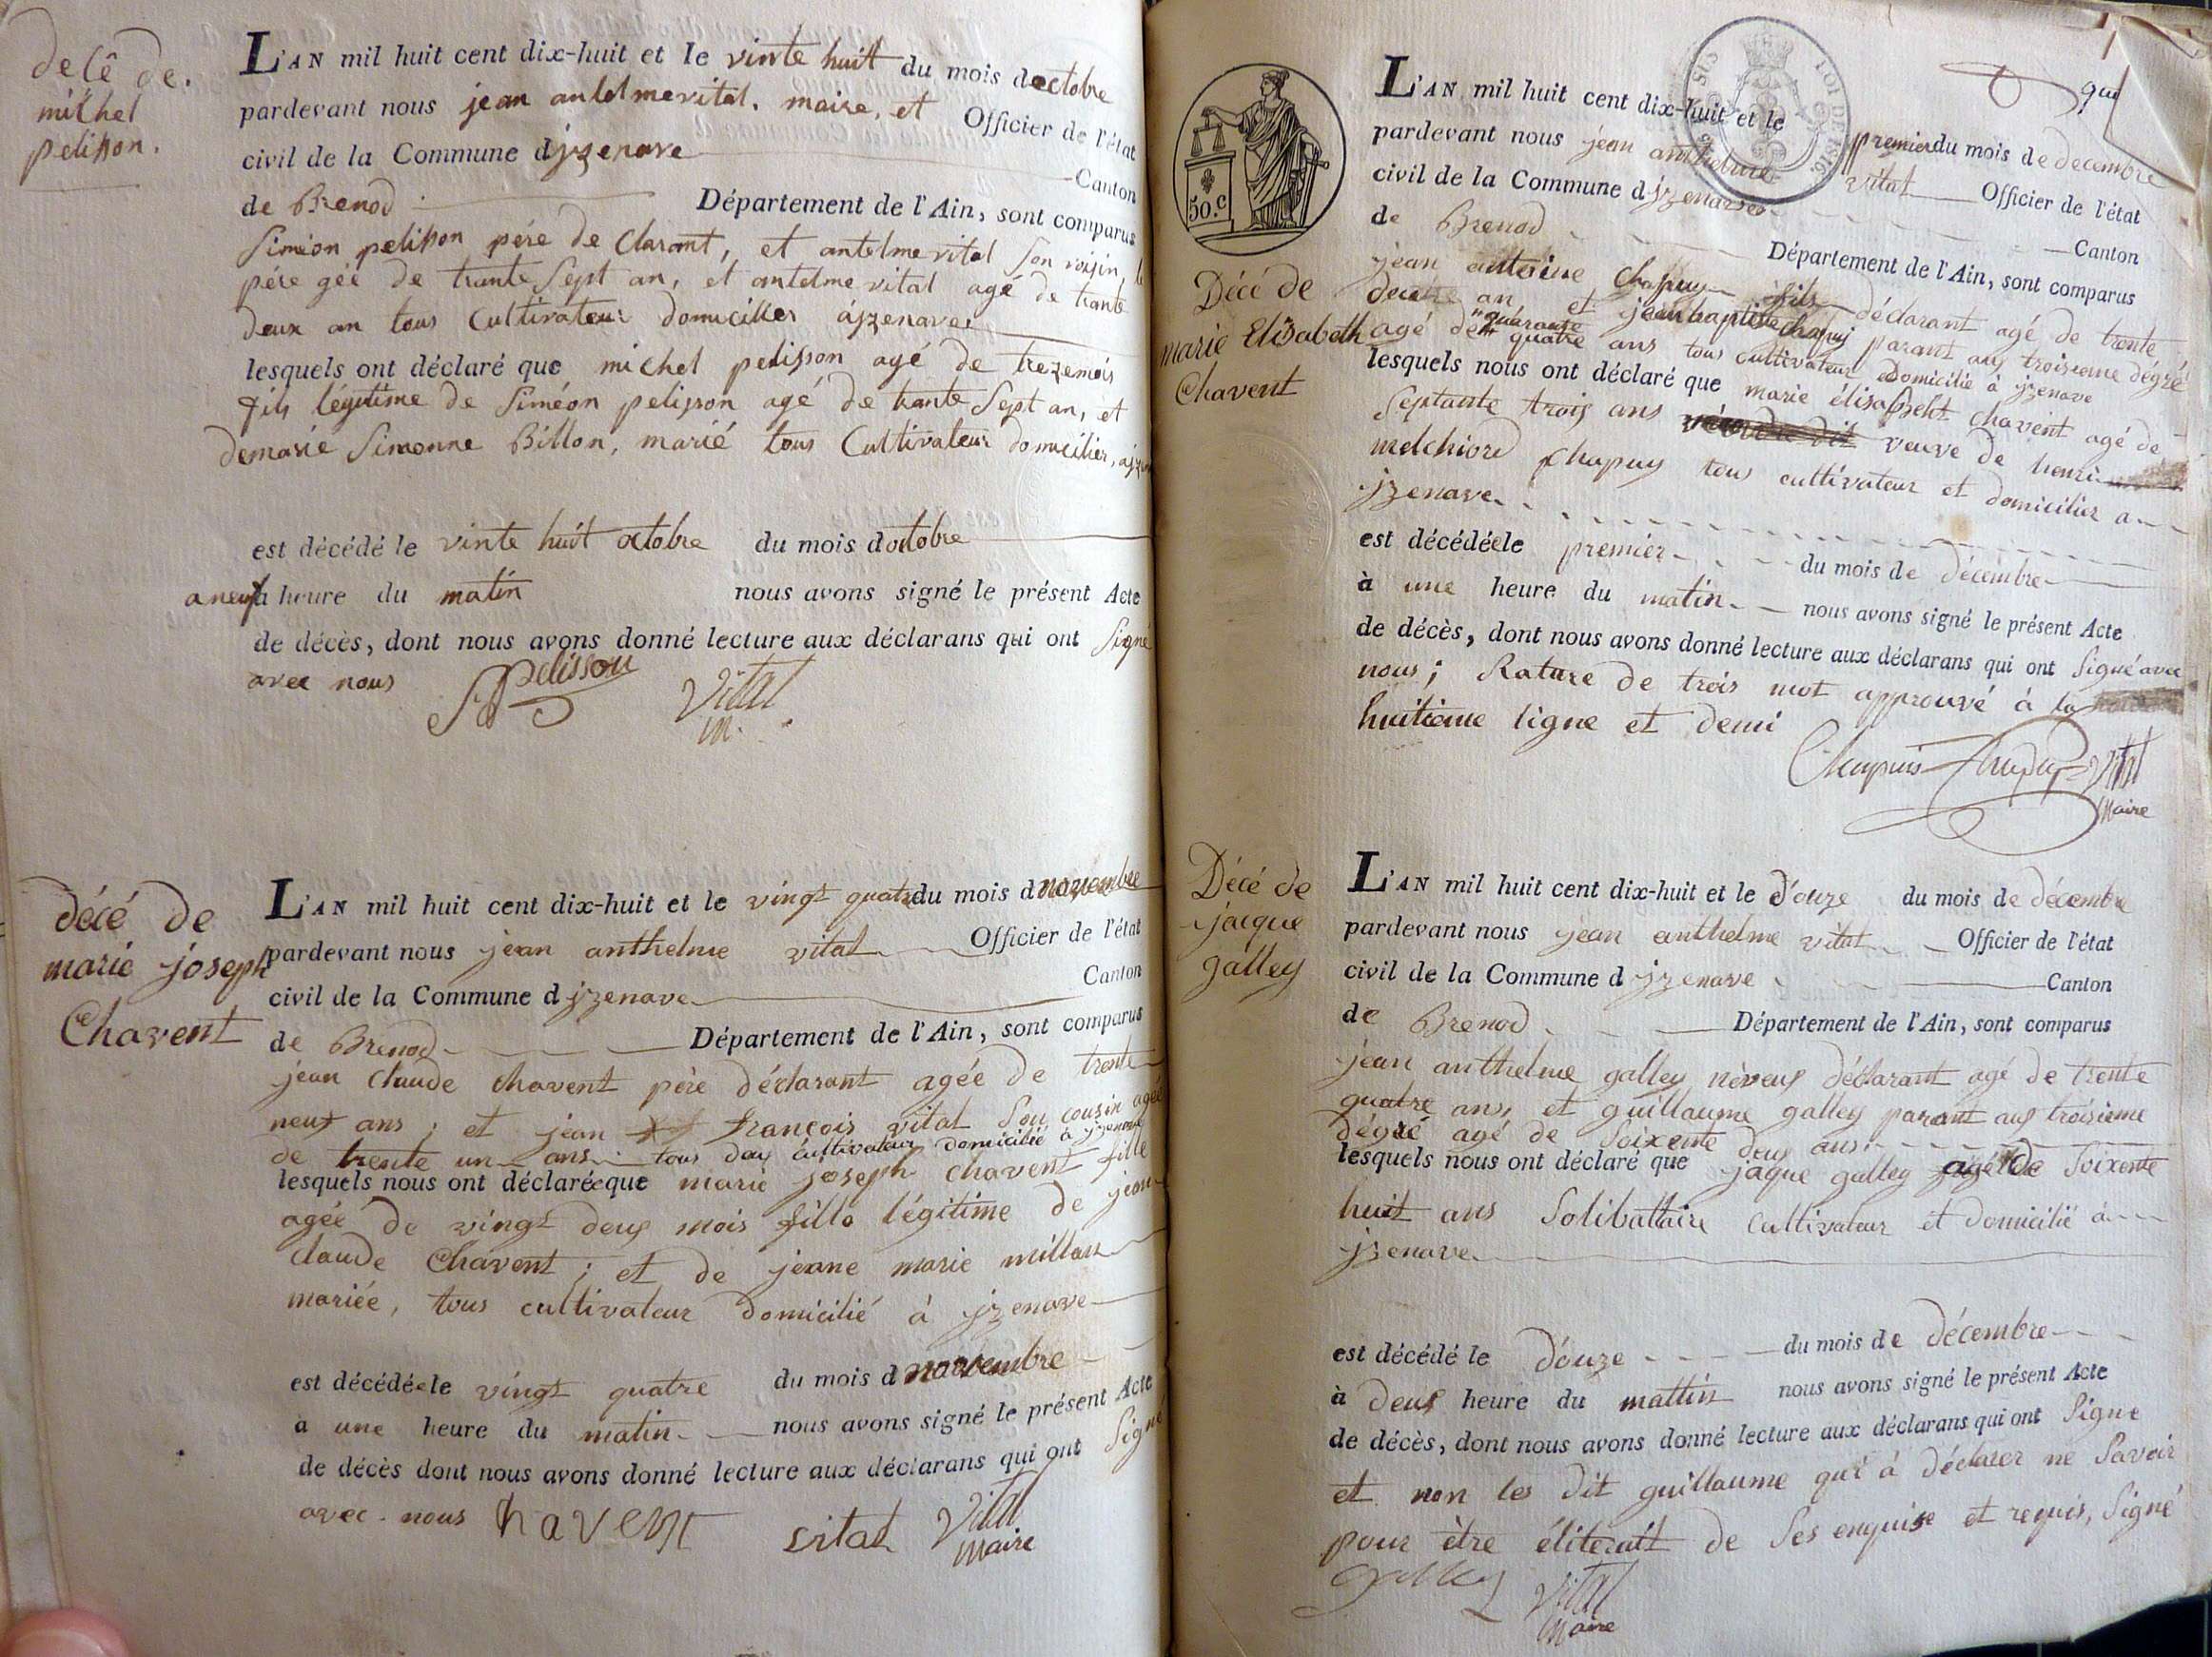 decê de.
michel
pelisson.
L'AN mil huit cent dix-huit et le vinte huitt du mois doctobre
pardevant nous jean antelmevital, maire, et Officier de l'état
civil de la Commune d'jzenave Canton
de Brenod Département de l'Ain, sont comparus
Siméon pelisson pére de Clarant, et antelme vital Son voisin, le
pére gée de trante Sept an, et antelme vital agé de trante
deux an tous Cultivateur domicilles ajzenave
lesquels ont déclaré que michel pelisson agé de trezemois
fils légitime de Siméon pelisson agé de trante Sept an, et
demarie Simonne Billon, marié tous Cultivateur domicilier,
est décédé le vinte huit octobre du mois doctobre
a neuf heure du matin nous avons signé le présent Acte
de décès, dont nous avons donné lecture aux déclarans qui ont Signé
avec nous Pelisson Vital
m.
décé de
marie joseph
Chavent
L'AN mil huit cent dix-huit et le vingt quatre du mois d novembre
pardevant nous jean anthelme vital Officier de l'état
civil de la Commune d jzenave Canton
de Brenod Département de l'Ain, sont comparus
jean Claude Chavent père déclarant agée de trente
neuf ans; et jean françois vital Son cousin agée
de trente un ans tous deux Cultivateur domicilié à jzenave
lesquels nous ont déclarée que marie joseph Chavent fille
agée de vingt deux mois fille légitime de jean
Claude Chavent; et de jeane marie millan
mariée, tous cultivateur domicilié à jzenave
est décédée le vingt quatre du mois d novembre
à une heure du matin nous avons signé le présent Acte
de décès dont nous avons donné lecture aux déclarans qui ont Signé
avec nous havent vital Vital
maire
50.c
LOI DE 1816
Décé de
marie Elisabeth
Chavent
L'AN mil huit cent dix-huit et le premier du mois de decembre
pardevant nous jean anthelme vital Officier de l'état
civil de la Commune d jzenave Canton
de Brenod Département de l'Ain, sont comparus
jean antoine Chapuy fils déclarant agé de trente
an, et jeanbaptiste chapuy parant aux troisieme dégré
agé de quarante quatre ans tous cultivateur domicilié à jzenave
lesquels nous ont déclaré que marie élisabeht Chavent agé de
Septante trois ans veuve de henri
melchiord Chapuy tous cultivateur et domicilier a
jzenave
est décédée le premier du mois de décembre
à une heure du matin nous avons signé le présent Acte
de décès, dont nous avons donné lecture aux déclarans qui ont Signé avec
nous; Rature de trois mot approuvé à la
huitième ligne et demi
Chapuis Chapuy Vital
maire
Décé de
jacque
galley
L'AN mil huit cent dix-huit et le d'ouze du mois de décembre
pardevant nous jean anthelme vital Officier de l'état
civil de la Commune d jzenave Canton
de Brenod Département de l'Ain, sont comparus
jean anthelme galley néveux déclarant agé de trente
quatre ans, et guillaume galley parant aux troisieme
dégré agé de Soixente deux ans
lesquels nous ont déclaré que jaque galley agé de Soixente
huit ans Solibattaire Cultivateur et domicilié à
jzenave
est décédé le d'ouze du mois de décembre
à deux heure du mattin nous avons signé le présent Acte
de décès, dont nous avons donné lecture aux déclarans qui ont Signe
et non les dit guillaume qui à déclarer ne Savoir
pour être éliterait de Ses enquise et requis, Signé
galley Vital
maire